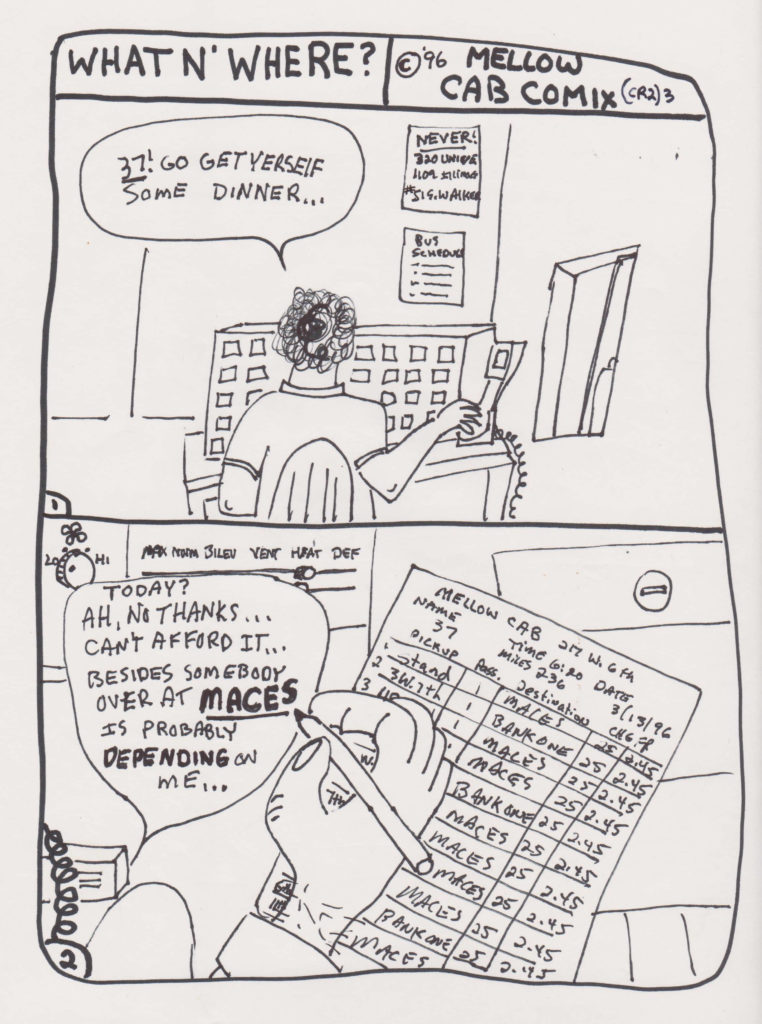 WHAT N' WHERE?
©'96 MELLOW
CAB COMIX (CR2) 3
37! GO GET YERSELF
SOME DINNER...
NEVER!
320 UNION
BUS
SCHEDULE
1
LO HI
MAX NORM BILEV VENT HEAT DEF
TODAY?
AH, NO THANKS...
CAN'T AFFORD IT...
BESIDES SOMEBODY
OVER AT MACES
IS PROBABLY
DEPENDING ON
ME...
MELLOW CAB 217 W. 6th
NAME TIME 6:20 DATE
37 MILES 236 3/13/96
PICKUP PASS. Destination CHG.
1 Stand 1 MACES 25 2.45
2 3W.7th 1 BANKONE 25 2.45
3 UP 1 MACES 25 2.45
MACES 25 2.45
BANKONE 25 2.45
MACES 25 2.45
MACES 25 2.45
MACES 25 2.45
MACES 25 2.45
BANKONE 25 2.45
MACES 25 2.45
W.
7th
2